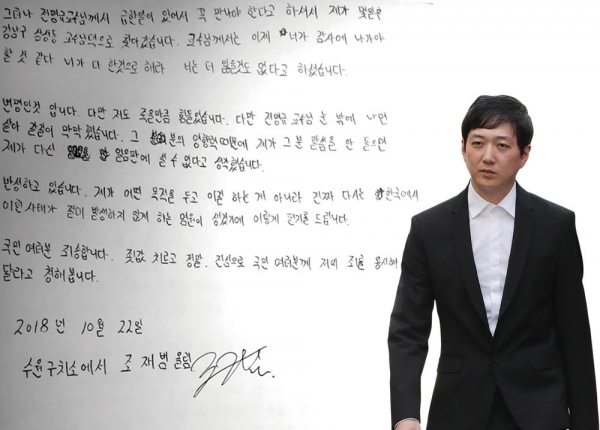 그러나 전명규교수님께서 급한일이 있어서 꼭 만나야 한다고 하셔서 제가
강남구 삼성동 교수님댁으로 찾아갔습니다. 교수님께서는 이제 니가 감사에 나가야
할 것 같다 니가 다 한것으로 해라 너는 더 잃을것도 없다고 하셨습니다.
변명인것 압니다. 다만 저도 죽을만큼 힘들었습니다. 다만 전명규 교수님 눈 밖에 나면
살아 갈길이 막막했습니다. 그 분의 영향력때문에 제가 그분 말씀을 안 들으면
제가 다신 얼음판에 설 수 없다고 생각했습니다.
반성하고 있습니다. 제가 어떤 목적을 두고 이걸 하는 게 아니라 진짜 다시는 한국에서
이런사태가 줄이 발생하지 않게 하는 염원이 생겼기에 이렇게 편지를 드립니다.
국민 여러분 죄송합니다. 죗값 치르고 정말, 진심으로 국민 여러분께 저의 죄를 용서해
달라고 청해봅니다.
2018년 10월 22일
수원구치소에서 조 재범 올림